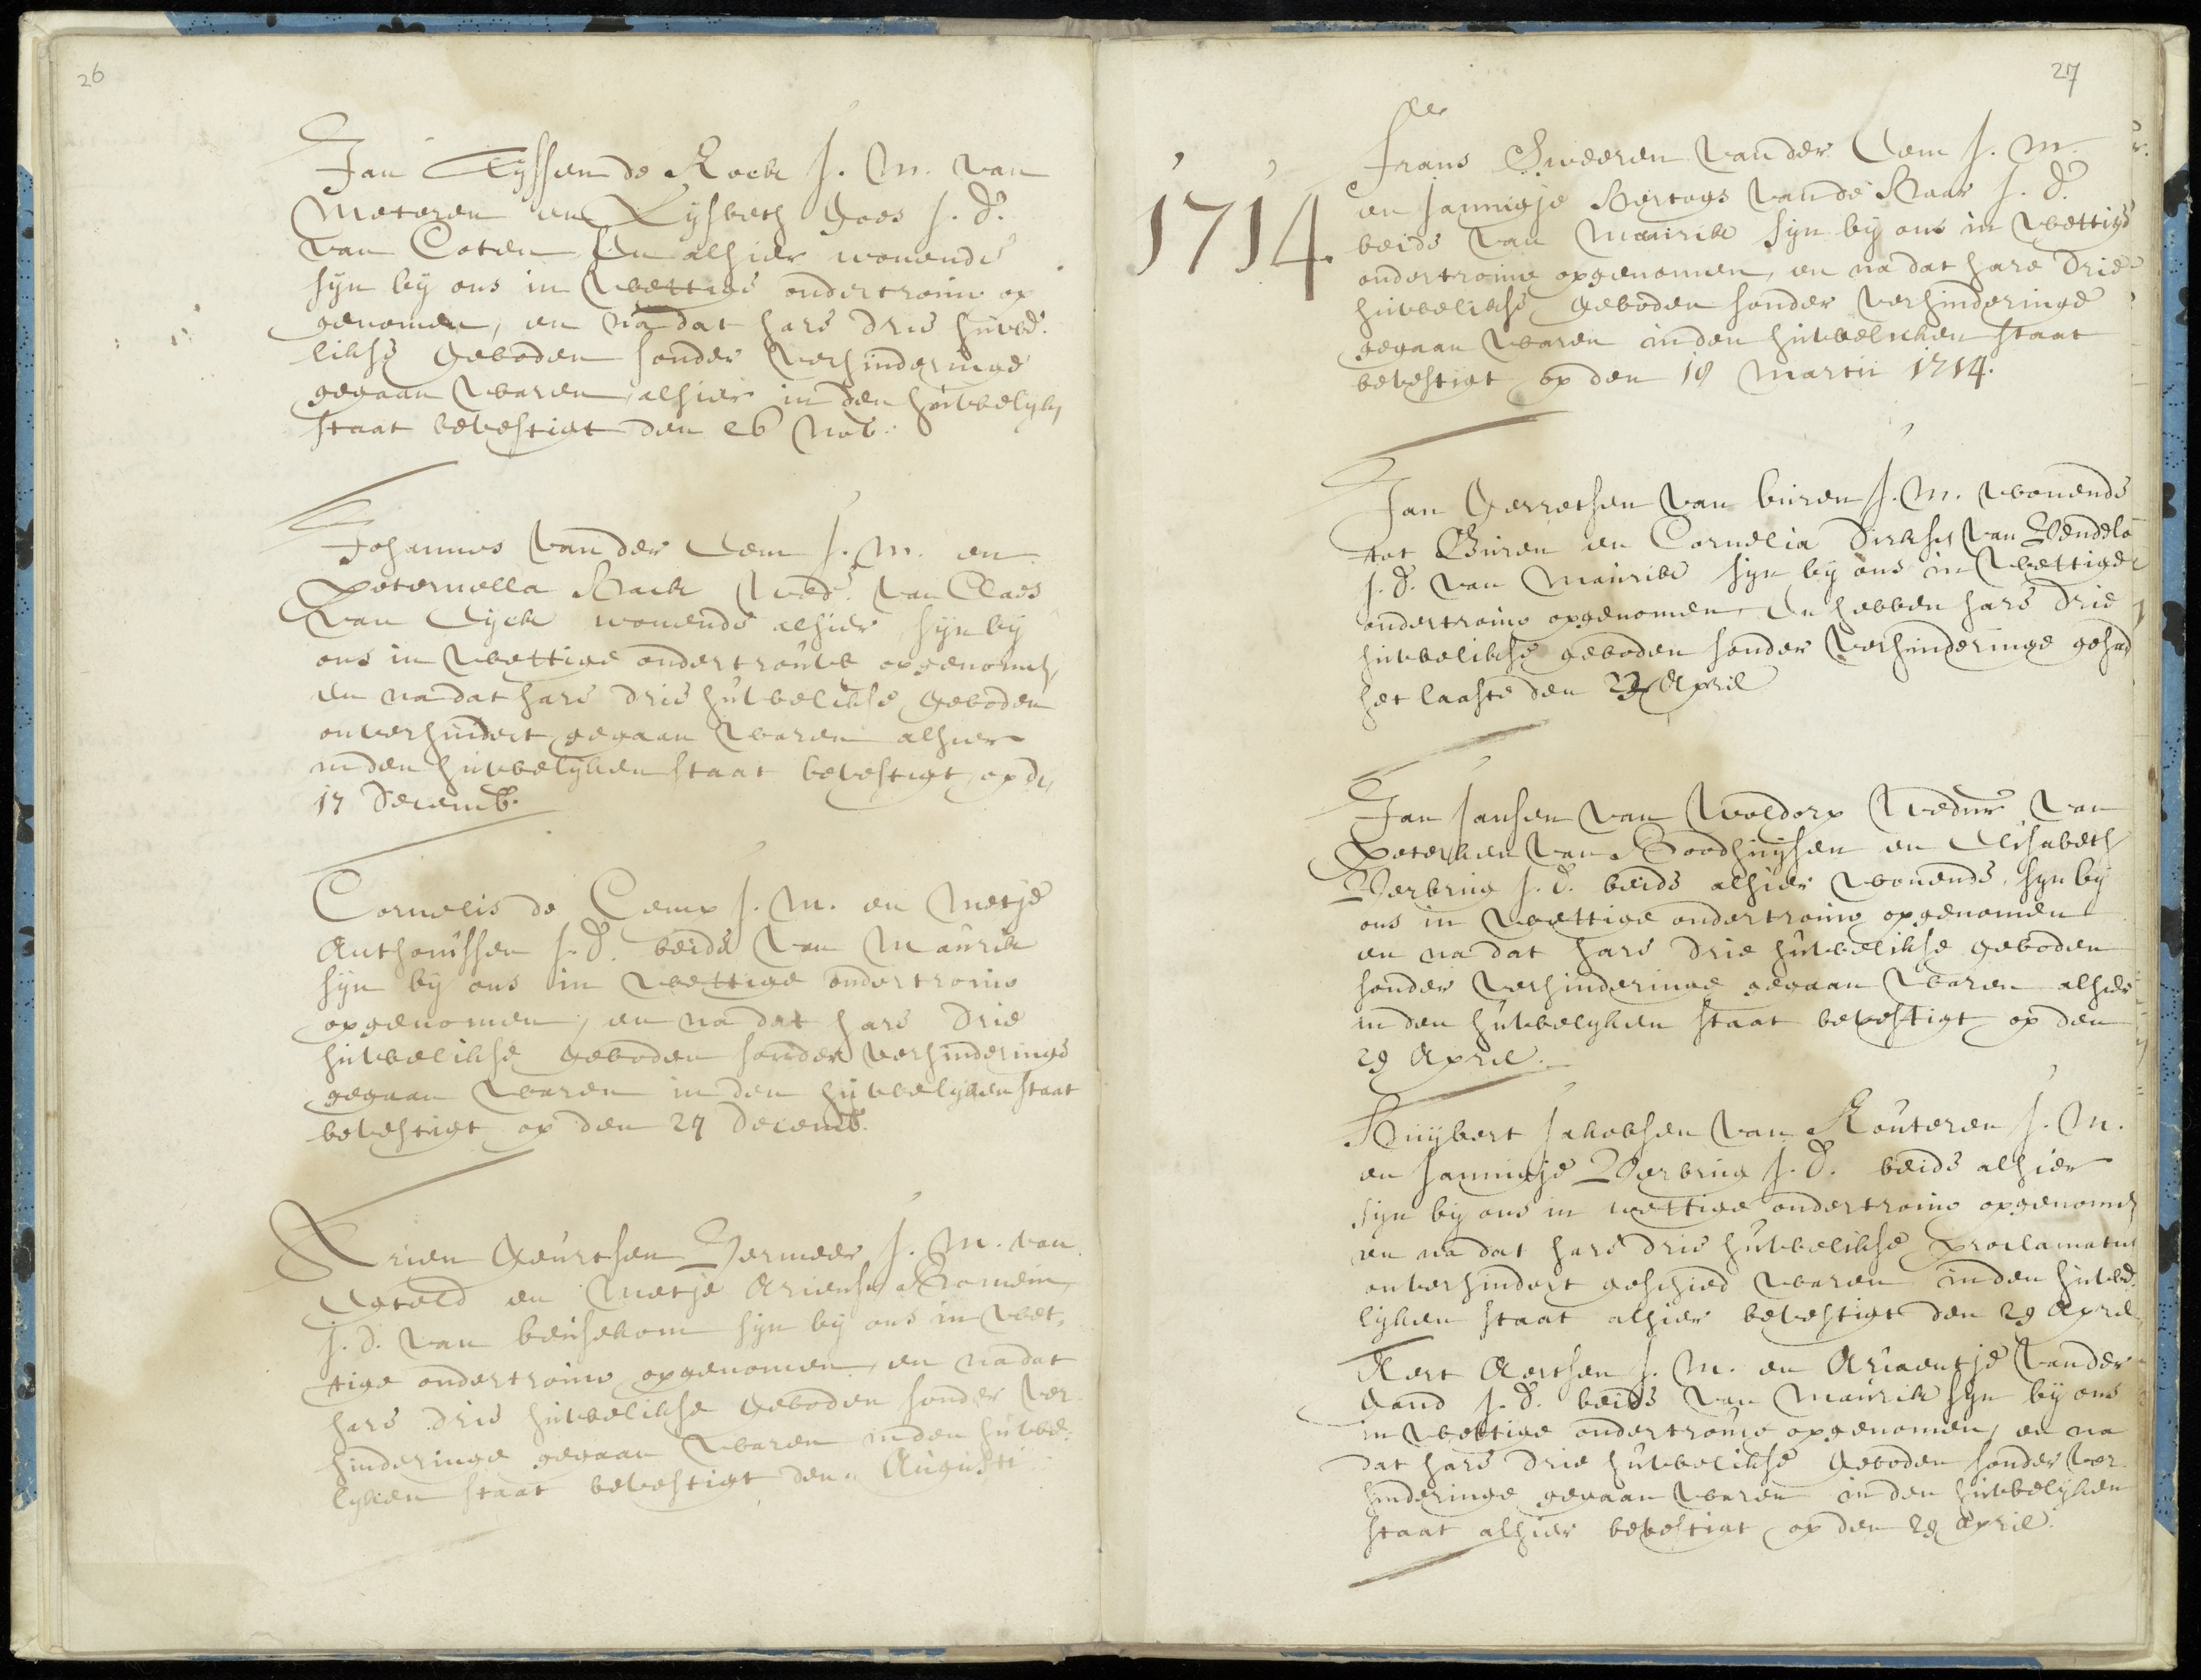 26
Jan Tyssen de Kock J. M. van
Meteren en Lijsbeth Goes J. D.
van Coten en alhier wonende
sijn bij ons in wettige ondertrouw op
genomen, en na dat hare drie huwe-
likse geboden sonder verhinderinge
gegaan waren alhier in den huwelijk
staat bevestigt den 26 Nov.
Johannes van der Lem J. M. en
Peternella Back Wed. van Claes
van Eyck wonende alhier, sijn bij
ons in wettige ondertrouwe opgenomen
en na dat hare drie huwelikse geboden
onverhindert gegaan waren alhier
in den huwelijken staat bevestigt op de
17 Decemb.
Cornelis de Cemp J. M. en Metje
Anthonissen J. D. beide van Maurik
sijn bij ons in wettige ondertrouw
opgenomen, en na dat hare drie
huwelikse geboden sonder verhinderinge
gegaan waren in den huwelijken staat
bevestigt op den 27 Decemb.
Arien Geurtsen Vermeer J. M. van
en Metje Ariense Romein
J. D. van beusekom sijn bij ons in wet-
tige ondertrouw opgenomen, en na dat
hare drie huwelikse geboden sonder ver
hinderinge gegaan waren in den huwe-
lijken staat bevestigt den Augusti
27
1714.
Frans Sweeren van der Lem J. M.
en Jannigje Bertogs van de Kaas J. D.
beide van Maurik sijn bij ons in wettige
ondertrouw opgenomen, en na dat hare drie
huwelikse geboden sonder verhinderinge
gegaan waren in den huwelicken staat
bevestigt op den 18 Martii 1714.
Jan Gerretsen van buren J. M. wonende
tot Buren en Cornelia Dirkse van Wendelo
J. D. van Maurik sijn bij ons in wettige
ondertrouw opgenomen, en hebben hare drie
huwelikse geboden sonder verhinderinge gehad
het laaste den April
Jan Jansen van Woldorp Wedur van
Peterken van Goodhuijsen en Elisabeth
Verbrug J. D. beide alhier wonende, sijn bij
ons in wettige ondertrouw opgenomen
en na dat hare drie huwelikse geboden
sonder verhinderinge gegaan waren alhier
in den huwelijken staat bevestigt op den
29 April.
Huijbert Jakobsen van Kouteren J. M.
en Jannigje Verbrug J. D. beide alhier
sijn bij ons in wettige ondertrouw opgenomen
en na dat hare drie huwelikse proclamatien
onverhindert geschied waren in den huwe-
lijken staat alhier bevestigt den 29 April
Aert Aertsen J. M. en Ariaentje van der
Gand J. D. beide van Maurik sijn bij ons
in wettige ondertrouw opgenomen, en na
dat hare drie huwelikse geboden sonder ver
hinderinge gegaan waren in den huwelijken
staat alhier bevestigt op den 29 April.